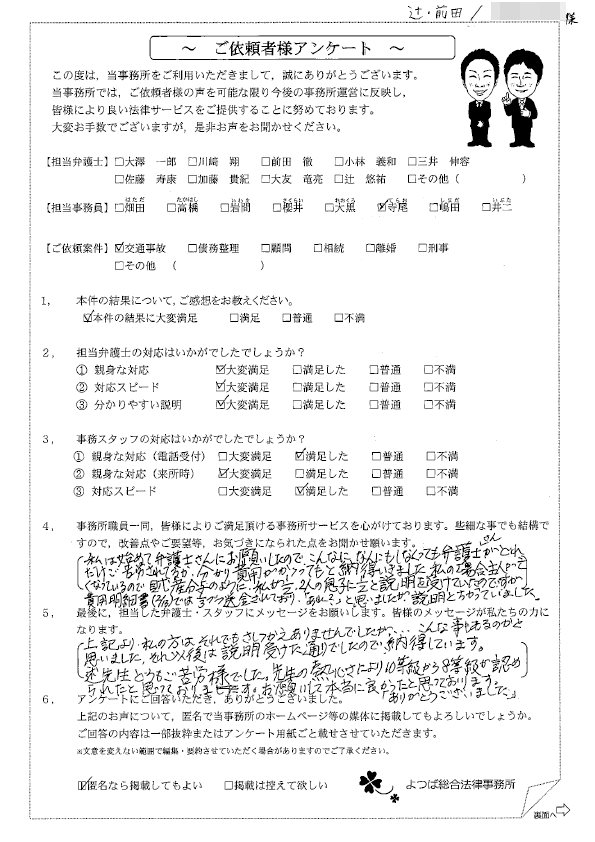 辻・前田 / 様
～ ご依頼者様アンケート ～
この度は，当事務所をご利用いただきまして，誠にありがとうございます。
当事務所では，ご依頼者様の声を可能な限り今後の事務所運営に反映し，
皆様により良い法律サービスをご提供することに努めております。
大変お手数でございますが，是非お声をお聞かせください。
【担当弁護士】□大澤 一郎 □川﨑 翔 □前田 徹 □小林 義和 □三井 伸容
□佐藤 寿康 □加藤 貴紀 □大友 竜亮 □辻 悠祐 □その他（ ）
【担当事務員】□畑田 □高橋 □岩間 □櫻井 □大黒 ☑寺尾 □嶋田 □井二
【ご依頼案件】☑交通事故 □債務整理 □顧問 □相続 □離婚 □刑事
□その他 （ ）
1， 本件の結果について，ご感想をお教えください。
☑本件の結果に大変満足 □満足 □普通 □不満
2， 担当弁護士の対応はいかがでしたでしょうか？
① 親身な対応 ☑大変満足 □満足した □普通 □不満
② 対応スピード ☑大変満足 □満足した □普通 □不満
③ 分かりやすい説明 ☑大変満足 □満足した □普通 □不満
3， 事務スタッフの対応はいかがでしたでしょうか？
① 親身な対応（電話受付） □大変満足 ☑満足した □普通 □不満
② 親身な対応（来所時） ☑大変満足 □満足した □普通 □不満
③ 対応スピード □大変満足 ☑満足した □普通 □不満
4， 事務所職員一同，皆様によりご満足頂ける事務所サービスを心がけております。些細な事でも結構で
すので，改善点やご要望等，お気づきになられた点をお聞かせ願います。
私は始めて弁護士さんにお願いしたので、こんなに なんにもしなくっても弁護士さんがどれ
だけご苦労されてるか、分かり費用がかかってもと納得いきました。私の場合主人が亡
くなっているので
費用明細書 では 送金されており、「あれ？」と思いましたが、説明とちがっていました。
5， 最後に，担当した弁護士・スタッフにメッセージをお願いします。皆様のメッセージが私たちの力に
なります。
上記より、私の方はそれでもさしつかえありませんでしたが、...こんな事もあるのかと
思いました。それ以後は説明受けた通りでしたので納得しています。
辻先生とてもご苦労様でした。先生の熱心さにより10等級から8等級が認め
られたと思っております。お願いして本当に良かったと思っております。
「ありがとうございました。」
6， アンケートにご回答いただき，ありがとうございました。
上記のお声について，匿名で当事務所のホームページ等の媒体に掲載してもよろしいでしょうか。
ご回答の内容は一部抜粋またはアンケート用紙ごと載せさせていただきます。
※文意を変えない範囲で編集・要約させていただく場合がありますのでご了承ください。
☑匿名なら掲載してもよい □掲載は控えて欲しい よつば総合法律事務所
裏面へ